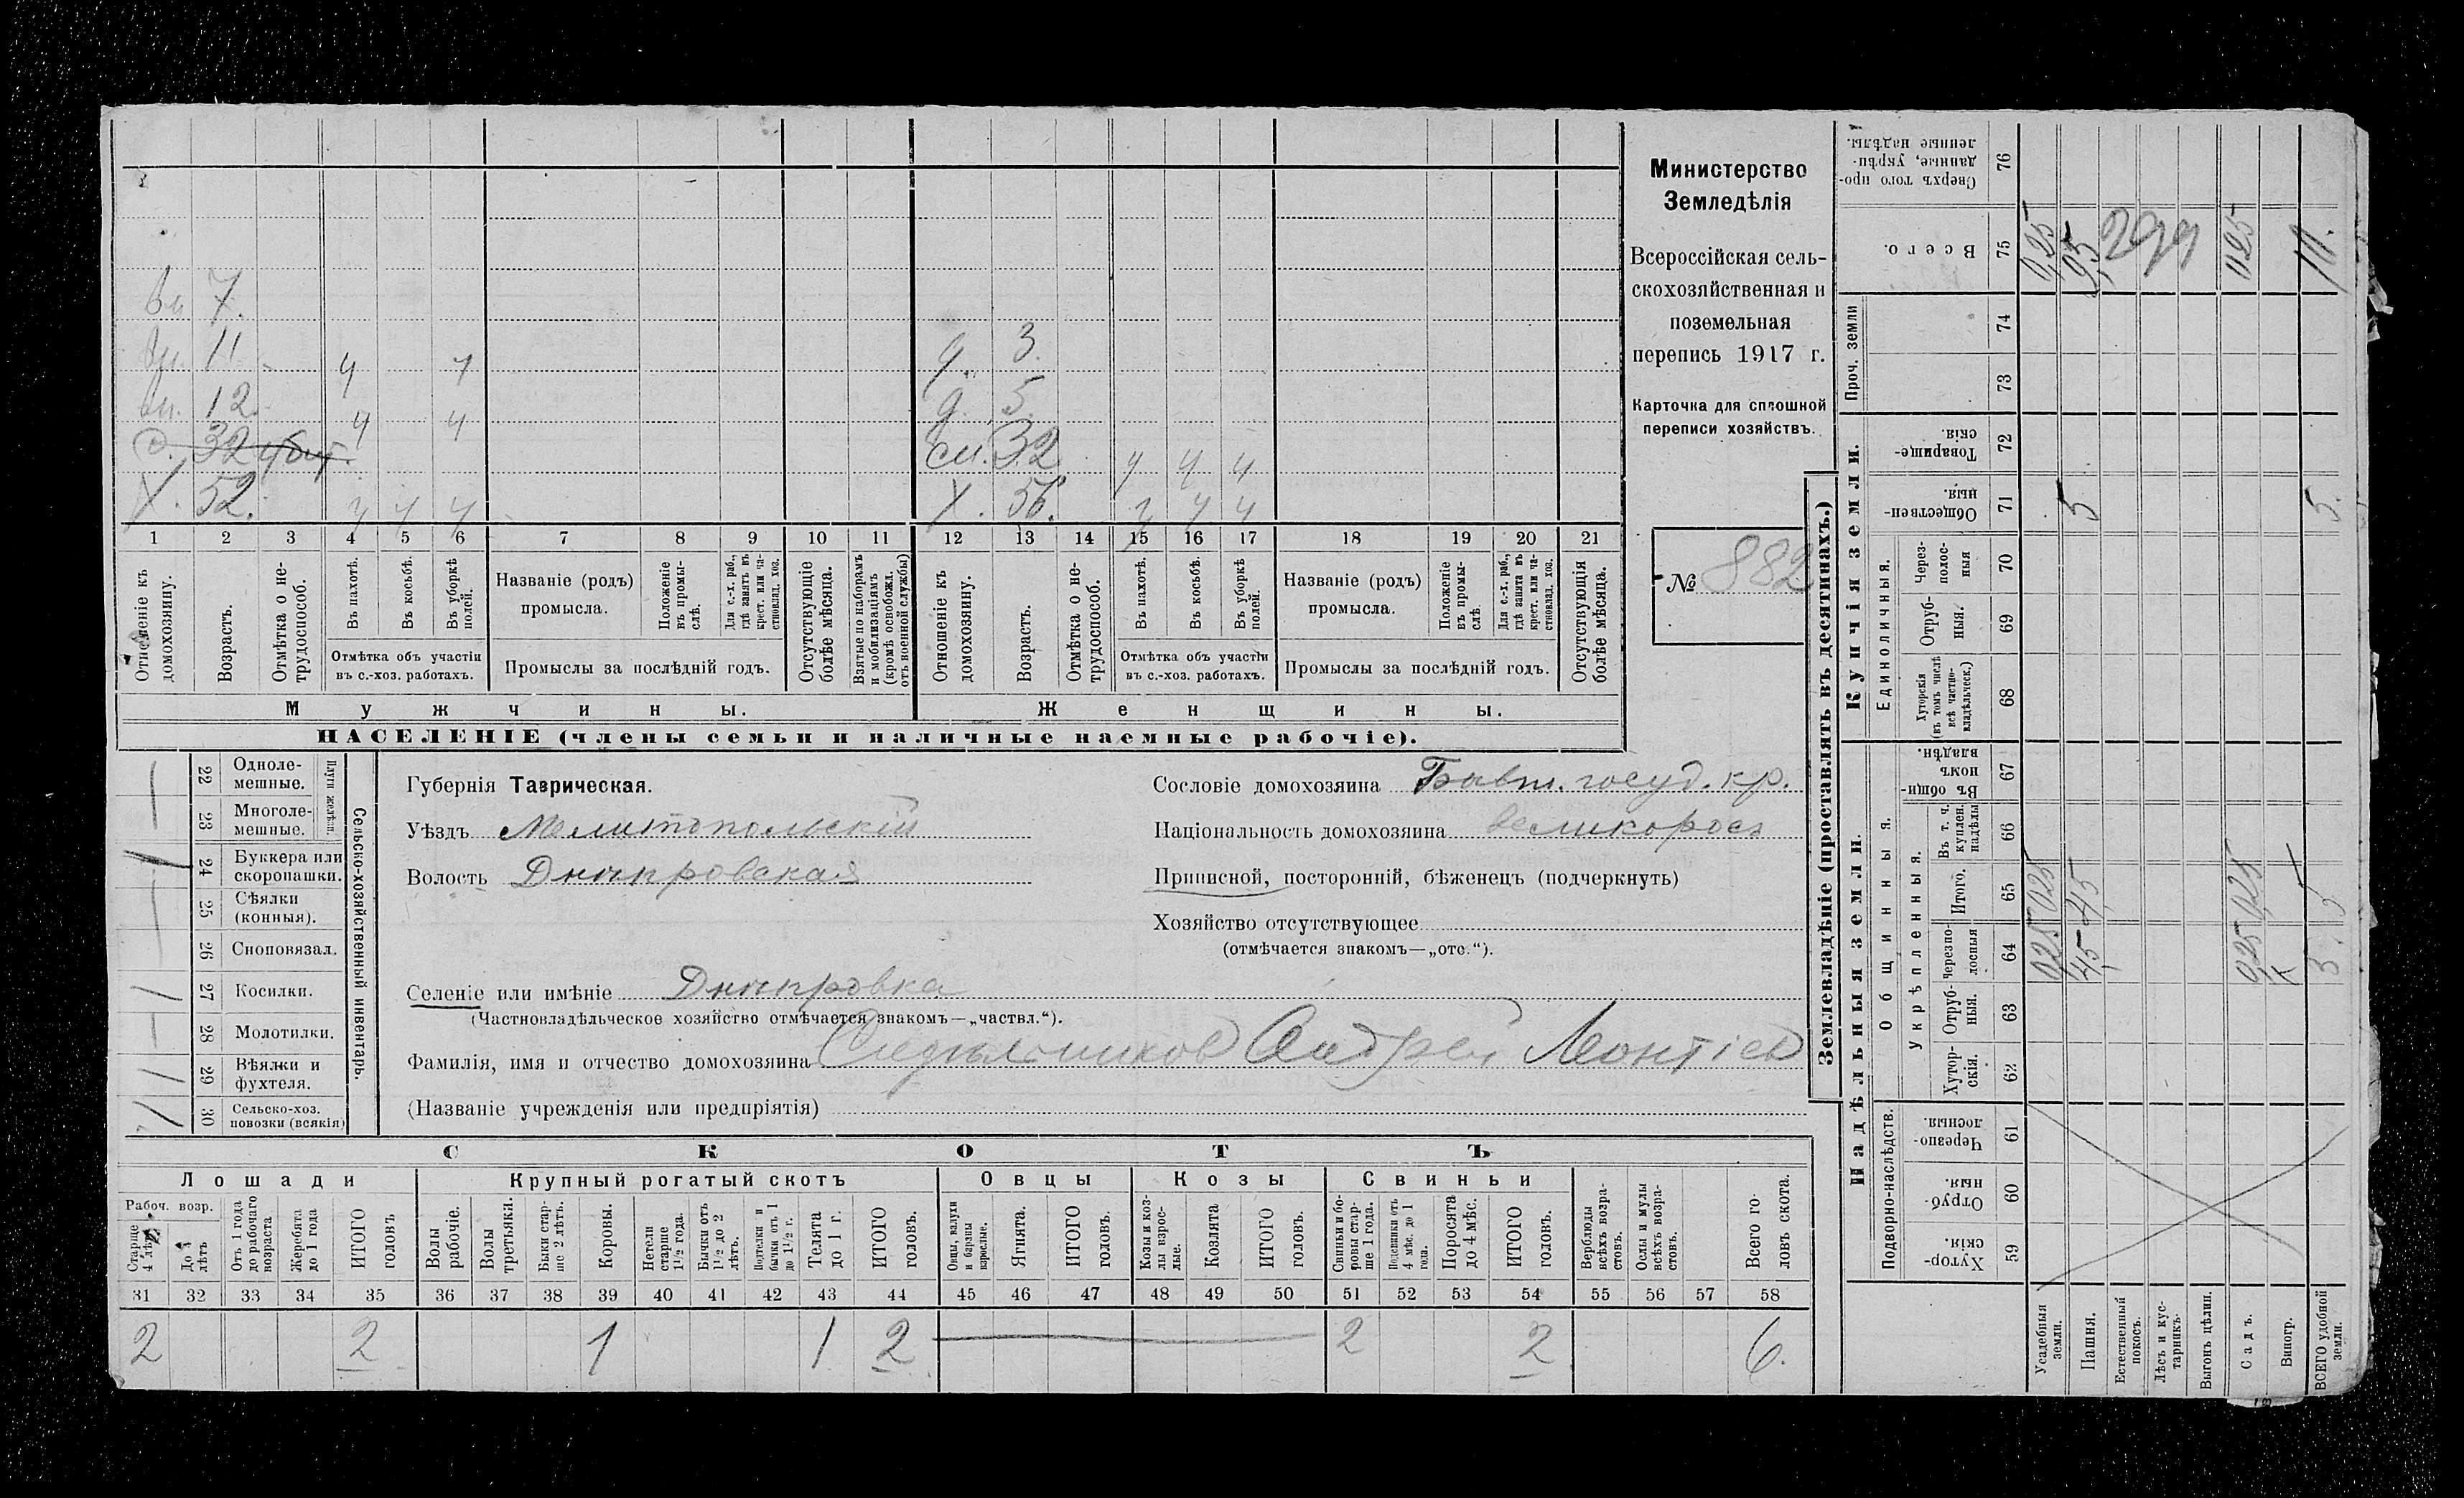 вн. 7.
вн. 11 ч ч
вн. 12. ч ч
с. 32 убит.
Х. 52. ч ч ч
д. 3.
д. 5.
сн. 32 ч ч ч
Х. 56. ч ч ч
1 2 3 4 5 6 7 8 9 10 11 12 13 14 15 16 17 18 19 20 21
Отношеніе къ домохозяину.
Возрастъ.
Отмѣтка о нетрудоспособ.
Въ пахотѣ.
Въ косьбѣ.
Въ уборкѣ полей.
Отмѣтка объ участіи въ с.-хоз. работахъ.
Названіе (родъ) промысла.
Положеніе въ промыслѣ.
Для с.-х. раб., гдѣ занятъ въ крест. или частновлад. хоз.
Промыслы за послѣдній годъ.
Отсутствующіе болѣе мѣсяца.
Взятые по наборамъ и мобилизаціямъ (кромѣ освобожд. отъ военной службы)
Отношеніе къ домохозяину.
Возрастъ.
Отмѣтка о нетрудоспособ.
Въ пахотѣ.
Въ косьбѣ.
Въ уборкѣ полей.
Отмѣтка объ участіи въ с.-хоз. работахъ.
Названіе (родъ) промысла.
Положеніе въ промыслѣ.
Для с.-х. раб., гдѣ занята въ крест. или частновлад. хоз.
Промыслы за послѣдній годъ.
Отсутствующія болѣе мѣсяца.
Мужчины.
Женщины.
НАСЕЛЕНІЕ (члены семьи и наличные наемные рабочіе).
Министерство
Земледѣлія
Всероссійская сель-
скохозяйственная и
поземельная
перепись 1917 г.
Карточка для сплошной
переписи хозяйствъ.
№ 882
22 Однолемешные.
23 Многолемешные.
Плуги желѣзн.
24 Буккера или скоропашки.
25 Сѣялки (конныя).
26 Сноповязал.
27 Косилки.
28 Молотилки.
29 Вѣялки и фухтеля.
30 Сельско-хоз. повозки (всякія)
Сельско-хозяйственный инвентарь.
Губернія Таврическая.
Уѣздъ Мелитопольскій
Волость Днѣпровская
Селеніе или имѣніе Днѣпровка
(Частновладѣльческое хозяйство отмѣчается знакомъ—„частвл.“).
Фамилія, имя и отчество домохозяина Андрей Леонтіев
(Названіе учрежденія или предпріятія)
Сословіе домохозяина Бывш. госуд. кр.
Національность домохозяина великоросъ
Приписной, посторонній, бѣженецъ (подчеркнуть)
Хозяйство отсутствующее
(отмѣчается знакомъ—„отс.“).
СКОТЪ
Лошади
Крупный рогатый скотъ
Овцы
Козы
Свиньи
Рабоч. возр.
Старше 4 лѣтъ
До 4 лѣтъ
Отъ 1 года до рабочаго возраста
Жеребята до 1 года
ИТОГО головъ
Волы рабочіе.
Волы третьяки.
Быки старше 2 лѣтъ.
Коровы.
Нетели старше 1½ года.
Бычки отъ 1½ до 2 лѣтъ.
Подтелки и бычки отъ 1 до 1½ г.
Телята до 1 г.
ИТОГО головъ.
Овцы, валухи и бараны взрослые.
Ягнята.
ИТОГО головъ.
Козы и козлы взрослые.
Козлята
ИТОГО головъ.
Свиньи и боровы старше 1 года.
Подсвинки отъ 4 мѣс. до 1 года.
Поросята до 4 мѣс.
ИТОГО головъ.
Верблюды всѣхъ возрастовъ.
Ослы и мулы всѣхъ возрастовъ.
Всего головъ скота.
31 32 33 34 35 36 37 38 39 40 41 42 43 44 45 46 47 48 49 50 51 52 53 54 55 56 57 58
2 2 1 1 2 2 2 6.
Землевладѣніе (проставлять въ десятинахъ.)
Надѣльныя земли.
Купчія земли.
Проч. земли
Подворно-наслѣдств.
Общинныя.
Укрѣпленныя.
Единоличныя.
Сверхъ того проданные, укрѣпленные надѣлы. 76
Всего. 75 0,25 9,5 0,25
74
73
Товарищескія. 72
Общественныя. 71 5 5.
Черезполосныя 70
Отрубныя. 69
Хуторскія (въ томъ числѣ всѣ частновладѣльческ.) 68
Въ общинномъ владѣн. 67
Въ т. ч. куплен. надѣлы 66
Итого. 65 0,25 4,5 0,25 5
Черезполосныя 64 0,25 4,5 0,25 5
Отрубныя. 63
Хуторскія. 62
Черезполосныя. 61
Отрубныя. 60
Хуторскія. 59
Усадебныя земли.
Пашня.
Естественный покосъ.
Лѣсъ и кустарникъ.
Выгонъ цѣлин.
Садъ.
Виногр.
ВСЕГО удобной земли.